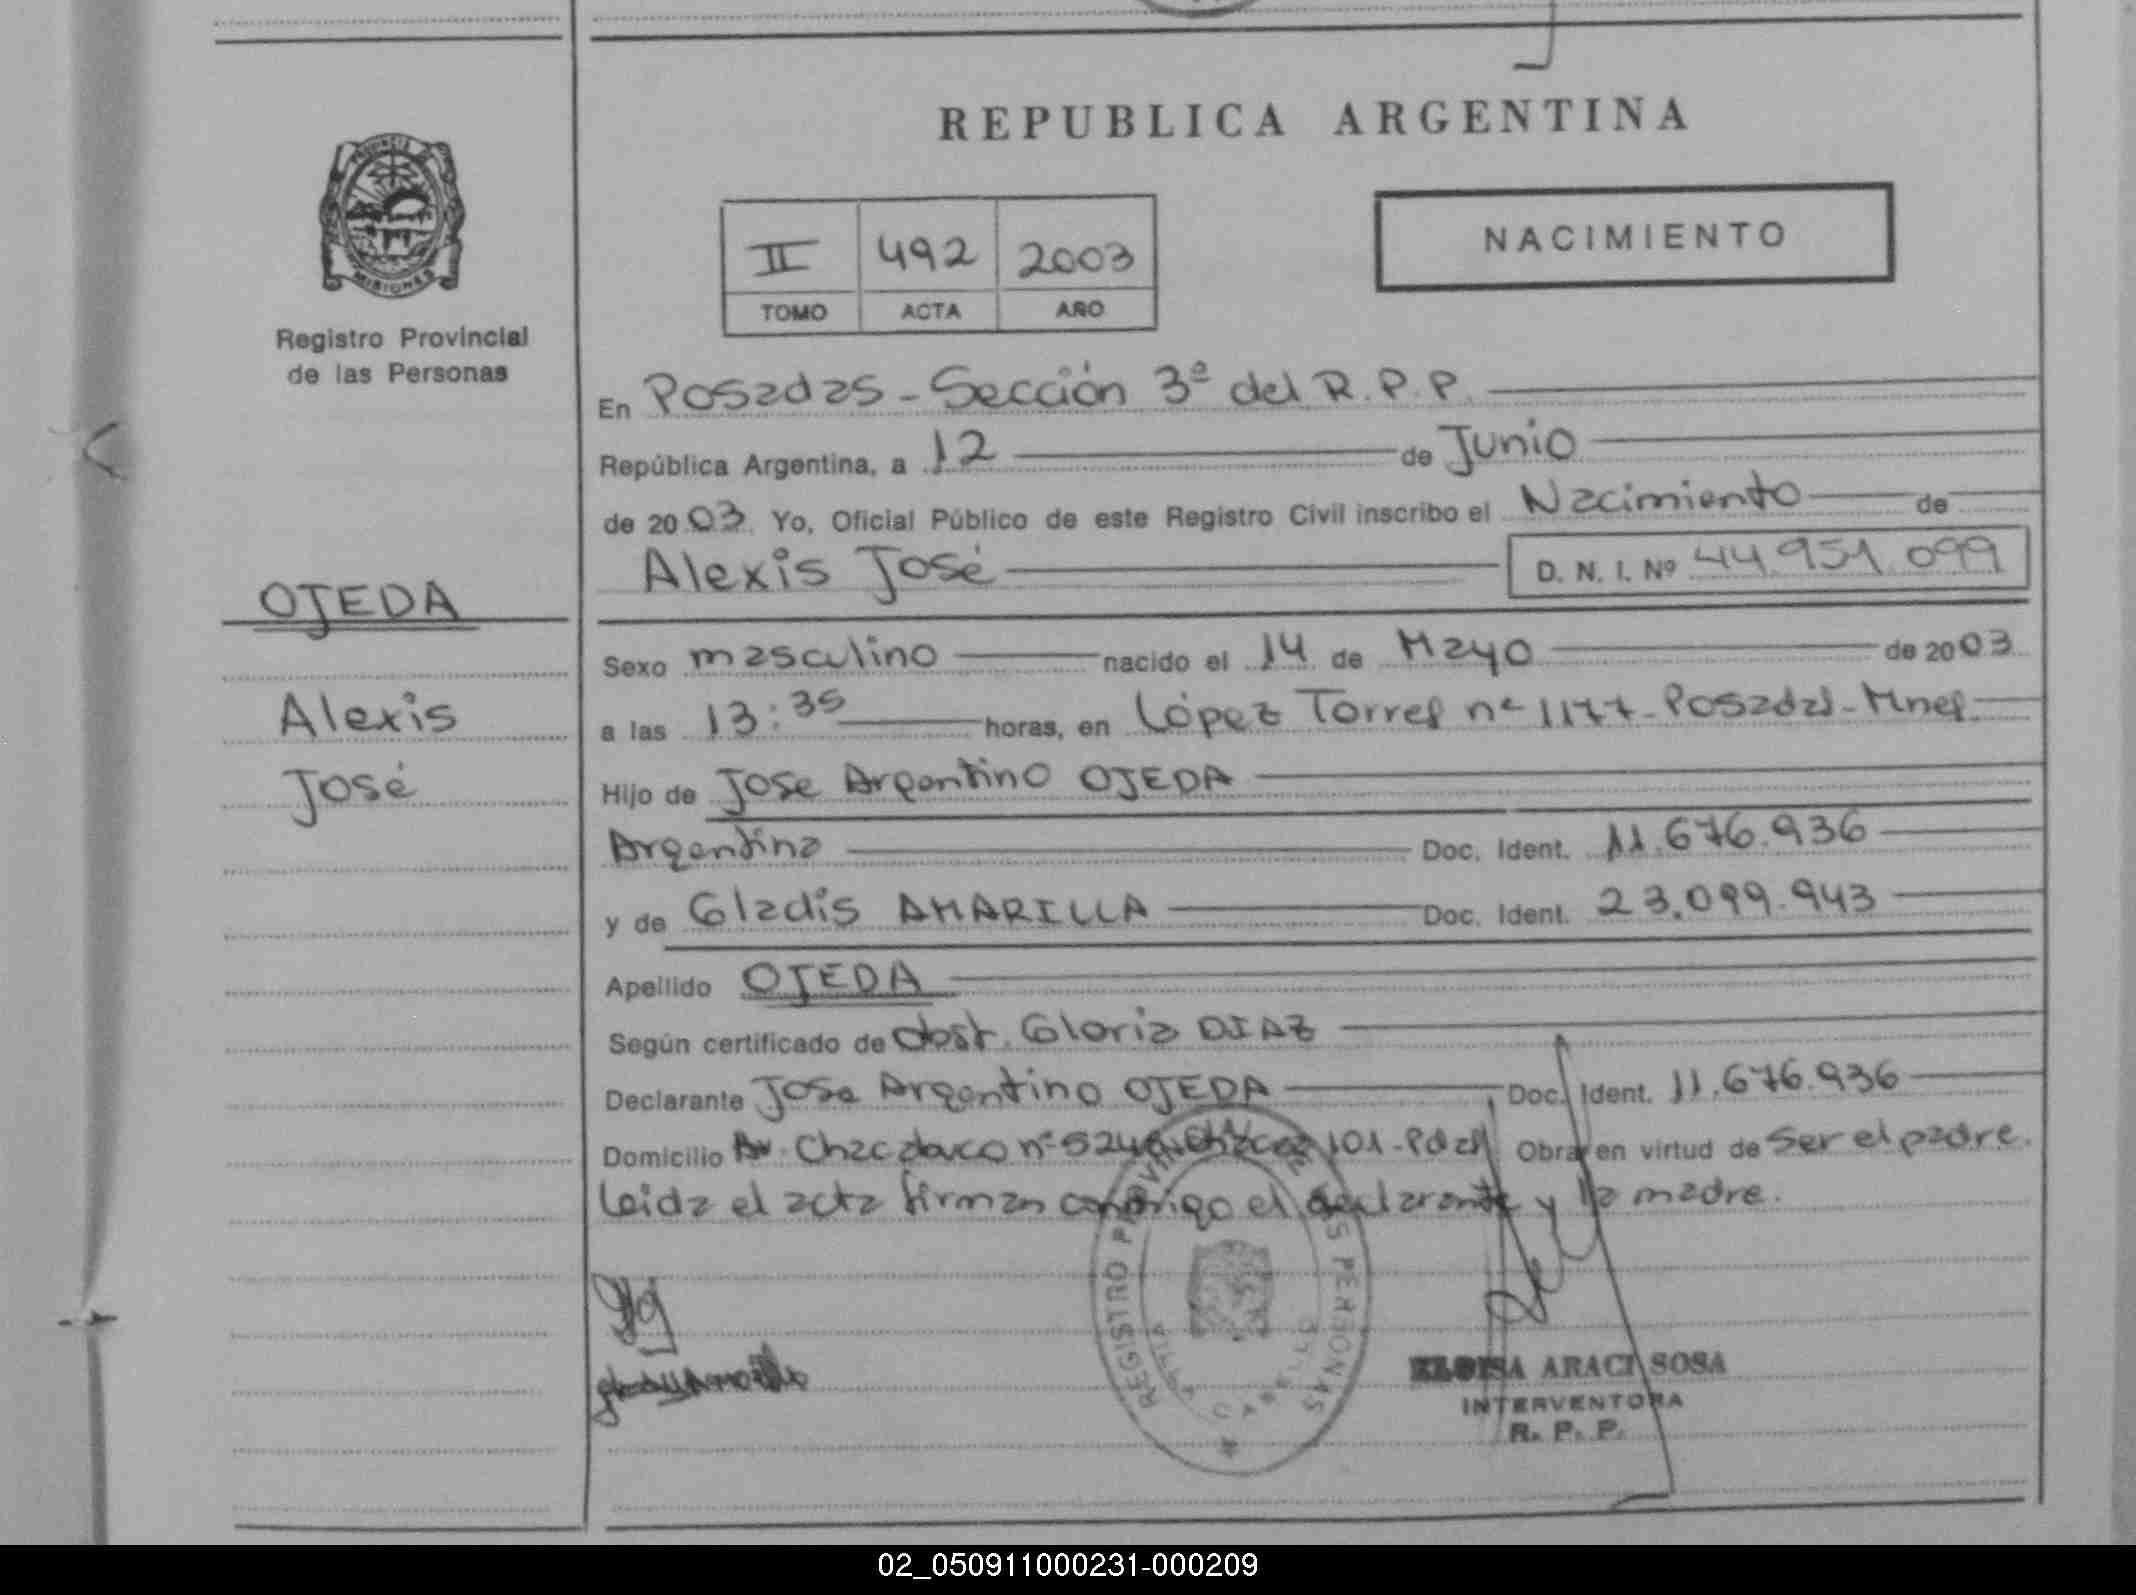 REPUBLICA ARGENTINA
PROVINCIA DE MISIONES
Registro Provincial
de las Personas
II 492 2003
TOMO ACTA AÑO
NACIMIENTO
En Posadas - Sección 3ª del R.P.P.
República Argentina, a 12 de Junio
de 2003. Yo, Oficial Público de este Registro Civil inscribo el Nacimiento de
Alexis José D. N. I. Nº 44.951.099
OJEDA
Alexis
José
Sexo masculino nacido el 14 de Mayo de 2003
a las 13:35 horas, en López Torres nº 1177 - Posadas - Mnes.
Hijo de Jose Argentino OJEDA
Argentina Doc. Ident. 11.676.936
y de Gladis AMARILLA Doc. Ident. 23.099.943
Apellido OJEDA
Según certificado de obst. Gloria DIAZ
Declarante Jose Argentino OJEDA Doc. Ident. 11.676.936
Domicilio Av. Chacabuco nº 101 - Pdas Obra en virtud de Ser el padre.
Leida el acta firman conmigo el declarante y la madre.
REGISTRO PERSONAS
ELOISA ARACI SOSA
INTERVENTORA
R. P. P.
02_050911000231-000209